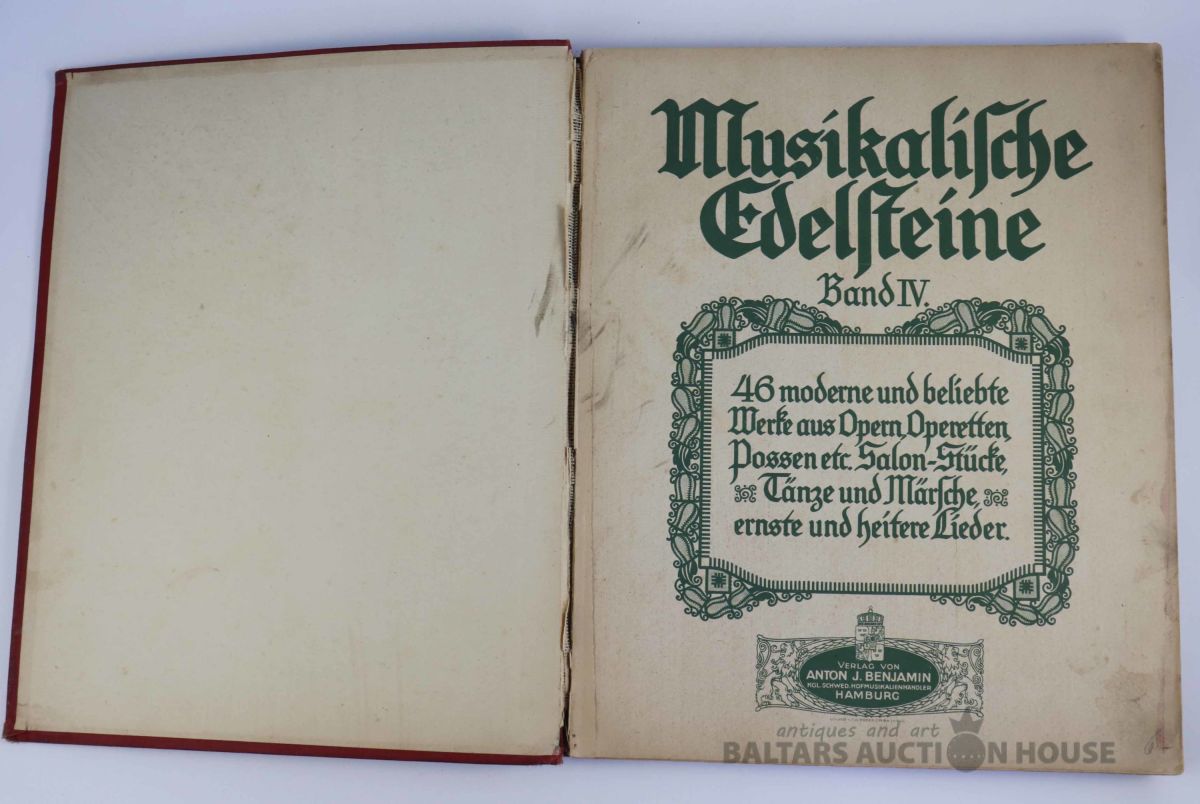 Musikalische
Edelsteine
Band IV.
46 moderne und beliebte
Werke aus Opern, Operetten,
Possen etc. Salon-Stücke,
Tänze und Märsche,
ernste und heitere Lieder.
VERLAG VON
ANTON J. BENJAMIN
KGL. SCHWED. HOFMUSIKALIENHÄNDLER
HAMBURG
antiques and art
BALTARS AUCTION HOUSE